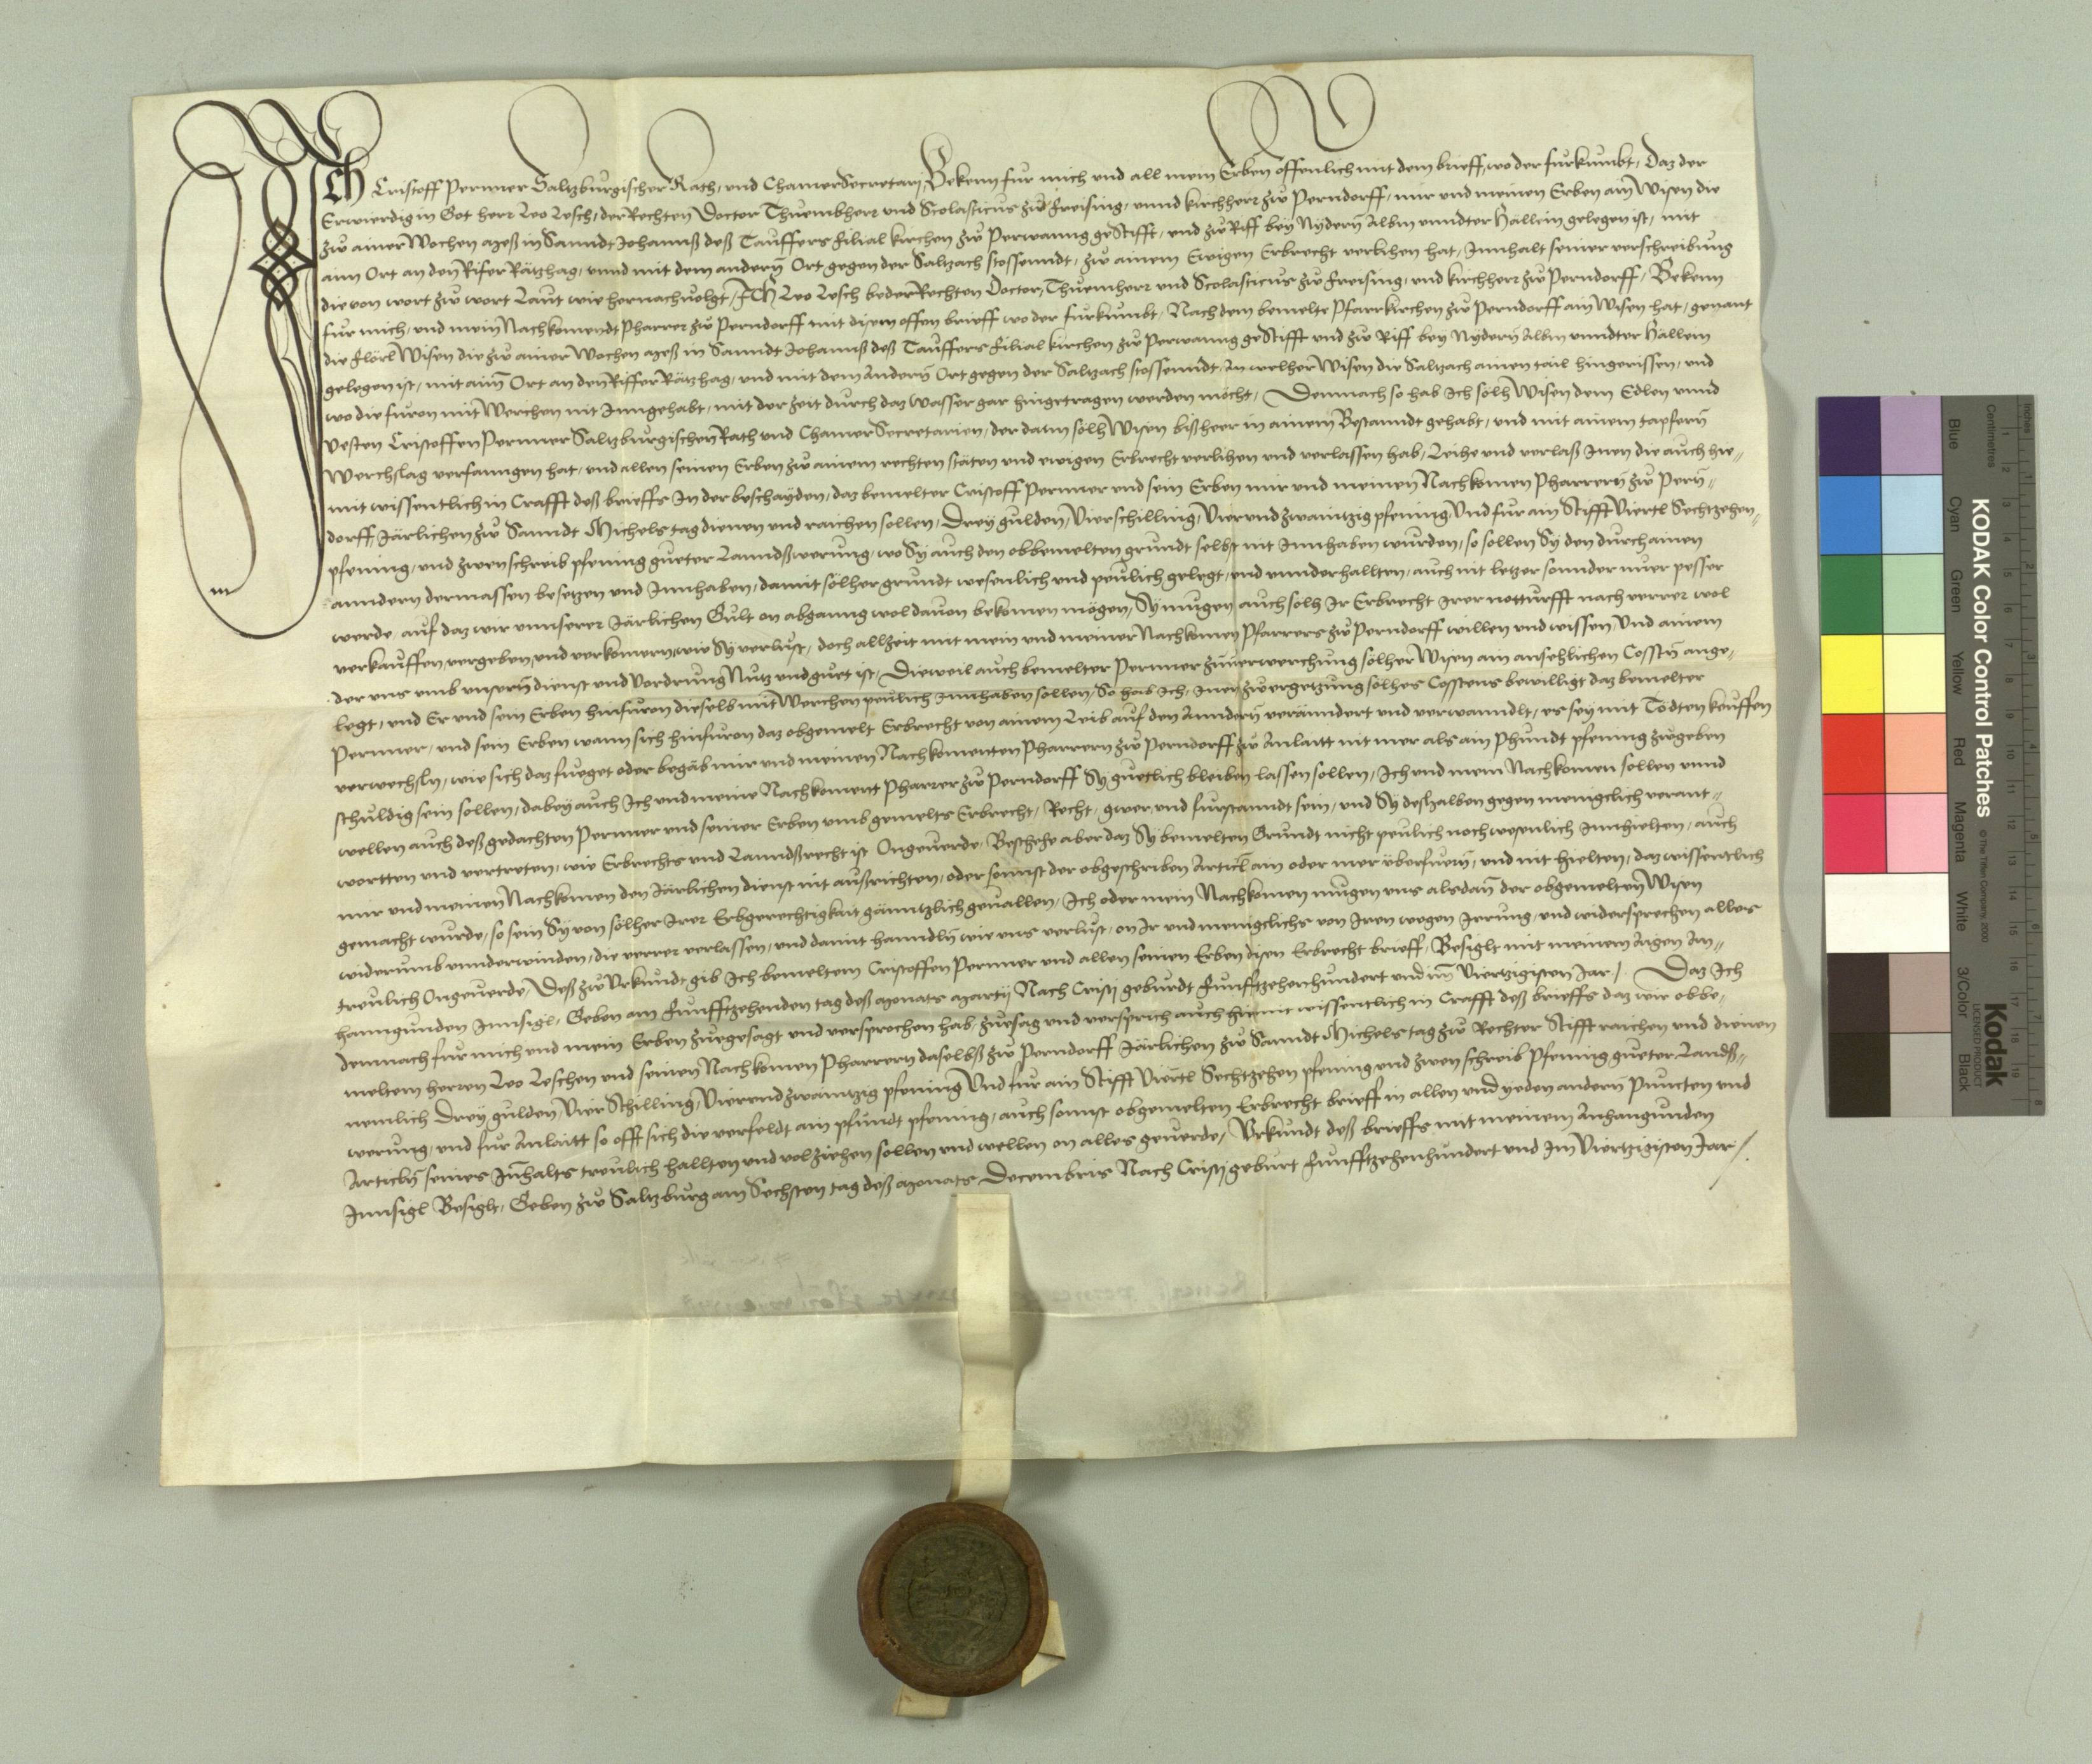 Ich Cristoff Permer Saltzburgischer Rath, und Chamer Secretarj Bekenn fur mich und all mein Erben offenlich mit dem brieff, wo der furkumbt, Daz der
Erwierdig in Got herr Leo Lesch, der Rechten Doctor Thuembherr und Scolasticus zw Freising, unnd kirchherr zw Perndorff, mir und meinen Erben ain Wisen die
zw ainer Wochen mess in Sanndt Johannß deß Tauffers filial kirchen zw Perwanng gestifft, und zw Riff bey Nydern Albm unndter Hallein gelegen ist, mit
aim Ort an den Rifer Rätzhag, unnd mit dem andern Ort gegen der Saltzach stossenndt, zw ainem Ewigen Erbrecht verlihen hat, Innhalt seiner verschreibung
die von wort zw wort Laut wie hernachvolgt, Ich Leo Lesch beder Rechten Doctor, Thuemherr und Scolasticus zw Freising, und kirchherr zw Perndorff, Bekenn
fur mich, und mein Nachkomendt Pharrer zw Perndorff mit disem offen brieff wo der furkumbt, Nach dem bemelte Pfarrkirchen zw Perndorff ain Wisen hat, genant
die Flörl Wisen die zw ainer Wochen mess in Sanndt Johannß deß Tauffers filial kirchen zw Perwanng gestifft und zw Riff bey Nydern Albm unndter Hallein
gelegen ist, mit aim Ort an den Riffer Rätzhag, und mit dem Andern Ort gegen der Saltzach stossenndt, An welher Wisen die Saltzach ainen tail hingerissen, und
wo die furon mit Werchen nit Inngehabt, mit der zeit durch daz wasser gar hingetragen werden möcht, Demnach so hab Ich solh Wisen dem Edlen unnd
Vesten Cristoffen Permer Saltzburgischen Rath und Chamer Secretarien, der dann solh Wisen bißheer in ainem Bestanndt gehabt, und mit ainem tapfern
Werchslag verfanngen hat, und allen seinen Erben zw ainem rechten stäten und ewigen Erbrecht verlihen und verlassen hab, Leihe und verlaß Inen die auch hie„
mit wissentlich in Crafft deß brieffs In der beschayden, daz bemelter Cristoff Permer und sein Erben mir und meinen Nachkomen Pharrern zw Pern„
dorff, Järlichen zw Sanndt Michels tag dienen und raichen sollen, Drey gulden, Vier schilling, Vierundzwaintzig pfening Und fur ain Stifft Viertl Sechtzehen„
pfening, und zwen schreib pfening gueter Lanndßwerung, wo Sy auch den obbemelten grundt selbst nit Innhaben wurden, so sollen Sy den durch ainen
anndern dermassen besetzen und Innhaben, damit solher grundt wesenlich und peulich gelegt, und unnderhallten, auch nit letzer sonnder nuer pesser
werde auf daz wir unnserer Järlichen Gült on abganng wol davon bekomen mögen, Sy mugen auch solh Ir Erbrecht Irer notturfft nach verrer wol
verkauffen, vergeben, und verkomern, wie Sy verlust, doch allzeit mit mein und meiner Nachkomen Pfarrers zw Perndorff willen und wissen, Und ainem
der uns umb unsern dienst und Vordrung Nutz und guet ist, Dieweil auch bemelter Permer zuverwerchung solher Wisen ain ansehlichen Cosstn ange„
legt, und Er und sein Erben hinfuron dieselb mit Werchen peulich Innhaben sollen, So hab Ich, Inen zuergetzung solhes Cosstens bewilligt daz bemelter
Permer, und sein Erben wann sich hinfuron daz obgemelt Erbrecht von ainem Leib auf den Anndern verändert und verwanndlt, es sey mit Tödten keuffen
verwechsln, wie sich daz fueget oder begäb mir und meinen Nachkomenten Pharrern zw Perndorff zw Anlaitt nit mer als ain Phundt pfening zugeben
schuldig sein sollen, dabey auch Ich und meine Nachkoment Pharrer zw Perndorff Sy guetlich bleiben lassen sollen, Ich und mein Nachkomen sollen unnd
wellen auch deß gedachten Permer und seiner Erben umb gemelts Erbrecht, Recht, gwer, und furstanndt sein, und Sy deshalben gegen menigclich verant„
wortten und vertreten, wie Erbrechts und Lanndßrecht ist Ongeverde, Beschehe aber daz Sy bemelten Grundt nicht peulich noch wesenlich Innhielten, auch
mir und meinen Nachkomen den Järlichen dienst nit außrichten, oder sonnst der obgeschriben Articl ain oder mer überfuern, und nit hielten, daz wissentlich
gemacht wurde, so sein Sy von solher Irer Erbgerechtigkait gänntzlich gevallen, Ich oder mein Nachkomen mugen uns alsdan der obgemelten Wisen
widerumb unnderwinden, die verrer verlassen, und damit hanndln wie uns verlust, on Ir und menigclichs von Iren wegen Irrung, und widersprechen alles
treulich Ongeverde, Deß zw Urkundt gib Ich bemeltem Cristoffen Permer und allen seinen Erben disen Erbrecht brieff, Besiglt mit meinem Aigen An„
hanngunden Innsigl, Geben am Funfftzehenden tag deß Monats Martij Nach Cristj geburdt Funfftzehenhundert und im Viertzigisten Jar /. Daz Ich
demnach fur mich und mein Erben zuegesagt und versprochen hab, zuesag und versprich auch hiemit wissentlich in Crafft deß brieffs daz wir obbe„
meltem herren Leo Leschen und seinen Nachkomen Pharrern daselbß zw Perndorff Järlichen zw Sanndt Michels tag zw Rechter Stifft raichen und dienen
nemlich Drey gulden, Vier Schilling, Vierundzwaintzig pfening Und fur ain Stifft Viertl Sechtzehen pfening und zwen schreib Pfening gueter Landß„
werung, und fur Anlaitt so offt sich die verfeldt ain pfundt pfening, auch sonnst obgemelten Erbrecht brieff in allen und yeden andern Puncten und
Articln seines Innhalts treulich hallten und volziehen sollen und wellen on alles geverde, Urkundt deß brieffs mit meinem Anhangunden
Innsigl Besiglt, Geben zw Saltzburg am Sechsten tag deß Monats Decembris Nach Cristj geburt Funfftzehenhundert und Im Viertzigisten Jar /.
KODAK Color Control Patches
© The Tiffen Company, 2000
Kodak
LICENSED PRODUCT
Inches
Centimetres
Blue Cyan Green Yellow Red Magenta White 3/Color Black